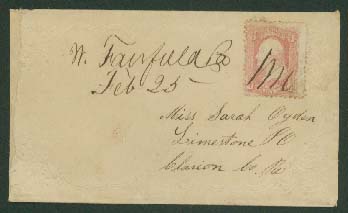 N. Fairfield Pa
Feb 25
Miss Sarah Ogden
Limestone PO
Clarion Co. Pa